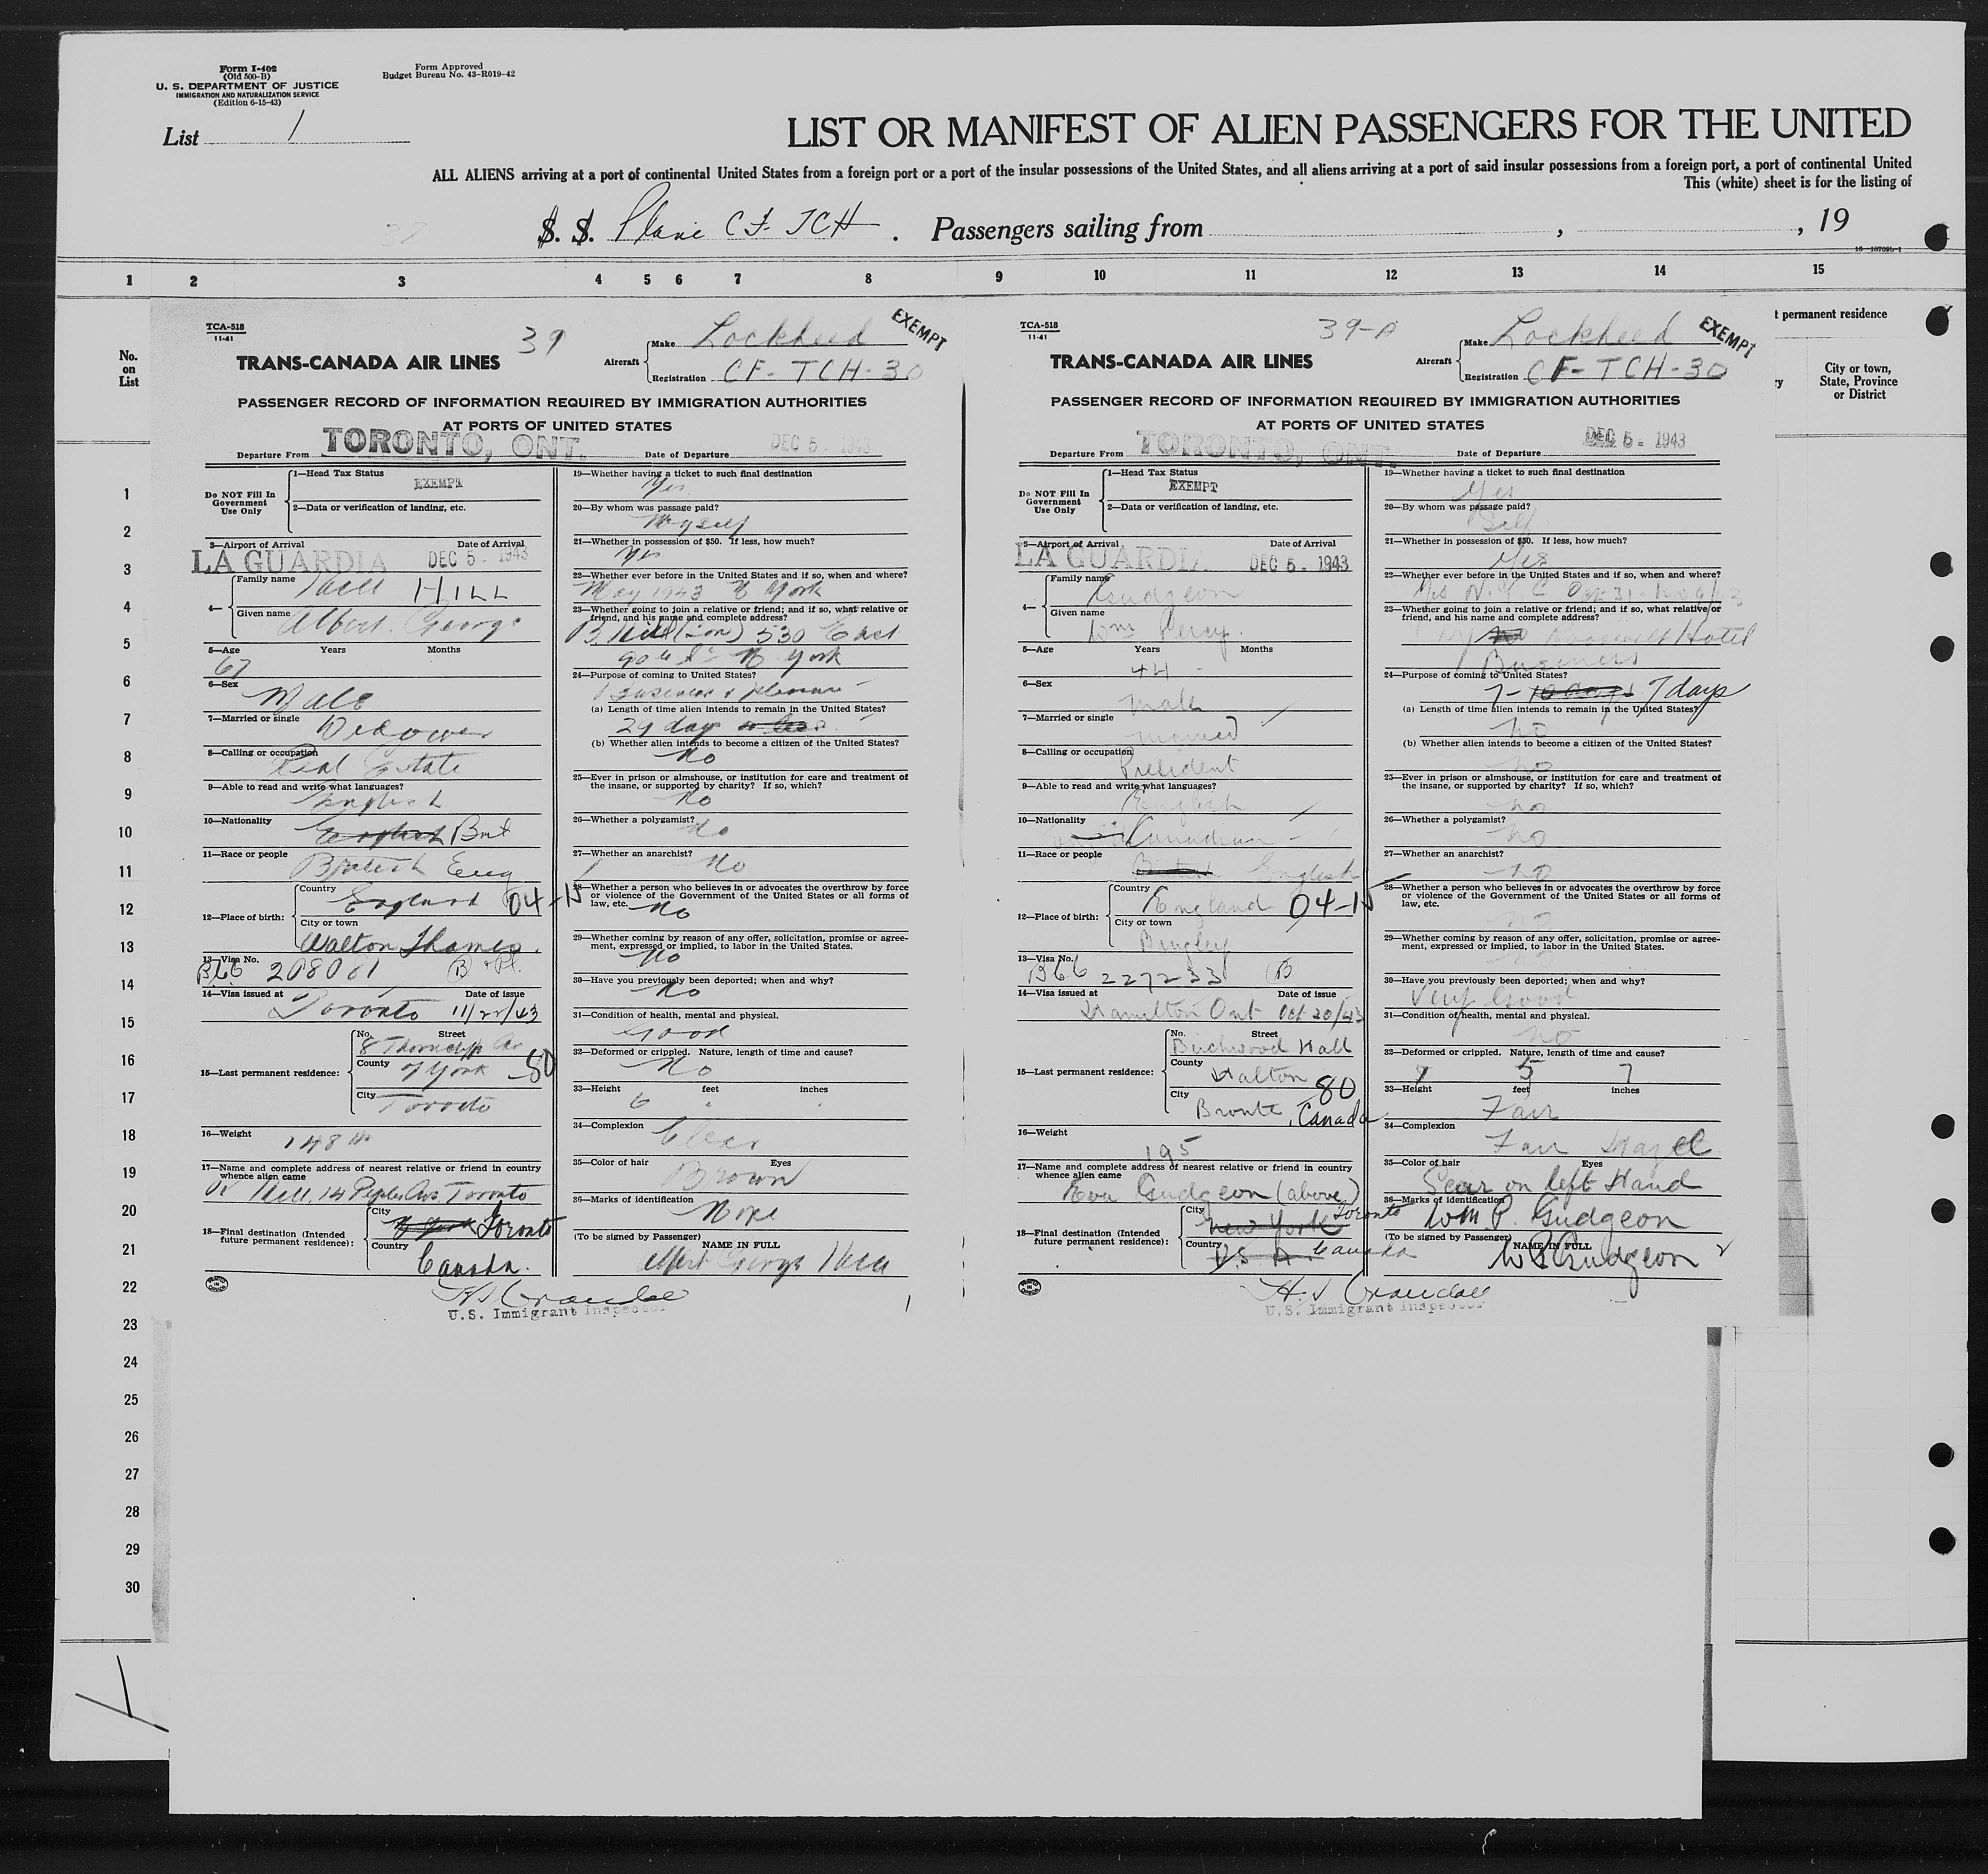 Form I-402
(Old 500-B)
U. S. DEPARTMENT OF JUSTICE
IMMIGRATION AND NATURALIZATION SERVICE
(Edition 6-15-43)
Form Approved
Budget Bureau No. 43-R019-42
List 1
LIST OR MANIFEST OF ALIEN PASSENGERS FOR THE UNITED
ALL ALIENS arriving at a port of continental United States from a foreign port or a port of the insular possessions of the United States, and all aliens arriving at a port of said insular possessions from a foreign port, a port of continental United
This (white) sheet is for the listing of
S. S. Plane CF-TCH . Passengers sailing from , , 19
1 2 3 4 5 6 7 8 9 10 11 12 13 14 15
No.
on
List
t permanent residence
City or town,
State, Province
or District
1
2
3
4
5
6
7
8
9
10
11
12
13
14
15
16
17
18
19
20
21
22
23
24
25
26
27
28
29
30
TCA-518
11-41
39
TRANS-CANADA AIR LINES
Aircraft
Make Lockheed
Registration CF-TCH-30
EXEMPT
PASSENGER RECORD OF INFORMATION REQUIRED BY IMMIGRATION AUTHORITIES
AT PORTS OF UNITED STATES
Departure From TORONTO, ONT. Date of Departure DEC 5 - 1943
Do NOT Fill In
Government
Use Only
1—Head Tax Status
EXEMPT
2—Data or verification of landing, etc.
3—Airport of Arrival Date of Arrival
LA GUARDIA DEC 5 - 1943
4—
Family name
Hill HILL
Given name
Albert George
5—Age Years Months
67
6—Sex
Male
7—Married or single
Widower
8—Calling or occupation
Real Estate
9—Able to read and write what languages?
English
10—Nationality
English Brit
11—Race or people
British Eng
12—Place of birth:
Country
England 04-15
City or town
Walton Thames.
13—Visa No.
B66 208081
14—Visa issued at Date of issue
Toronto 11/22/43
15—Last permanent residence:
No. Street
8 Thorncliffe Av
County
York 80
City
Toronto
16—Weight
148
17—Name and complete address of nearest relative or friend in country
whence alien came
Hill, 14 Peplar Ave Toronto
18—Final destination (Intended
future permanent residence):
City
N York Toronto
Country
Canada.
19—Whether having a ticket to such final destination
Yes
20—By whom was passage paid?
Myself
21—Whether in possession of $50. If less, how much?
Yes
22—Whether ever before in the United States and if so, when and where?
May 1943 N York
23—Whether going to join a relative or friend; and if so, what relative or
friend, and his name and complete address?
B Hill (son) 530 East
90th St N. York
24—Purpose of coming to United States?
Business & pleasure
(a) Length of time alien intends to remain in the United States?
29 days or less
(b) Whether alien intends to become a citizen of the United States?
No
25—Ever in prison or almshouse, or institution for care and treatment of
the insane, or supported by charity? If so, which?
No
26—Whether a polygamist?
No
27—Whether an anarchist?
No
28—Whether a person who believes in or advocates the overthrow by force
or violence of the Government of the United States or all forms of
law, etc.
No
29—Whether coming by reason of any offer, solicitation, promise or agree-
ment, expressed or implied, to labor in the United States.
No
30—Have you previously been deported; when and why?
No
31—Condition of health, mental and physical.
Good
32—Deformed or crippled. Nature, length of time and cause?
No
33—Height feet inches
6
34—Complexion
Clear
35—Color of hair Eyes
Brown
36—Marks of identification
None
(To be signed by Passenger) NAME IN FULL
Albert George Hill
H J Crandall
U.S. Immigrant Inspector
TCA-518
11-41
39-A
TRANS-CANADA AIR LINES
Aircraft
Make Lockheed
Registration CF-TCH-30
EXEMPT
PASSENGER RECORD OF INFORMATION REQUIRED BY IMMIGRATION AUTHORITIES
AT PORTS OF UNITED STATES
Departure From TORONTO, ONT. Date of Departure DEC 5 - 1943
Do NOT Fill In
Government
Use Only
1—Head Tax Status
EXEMPT
2—Data or verification of landing, etc.
3—Airport of Arrival Date of Arrival
LA GUARDIA DEC 5 - 1943
4—
Family name
Gudgeon
Given name
Wm Percy.
5—Age Years Months
44 -
6—Sex
Male
7—Married or single
Married
8—Calling or occupation
President
9—Able to read and write what languages?
English
10—Nationality
Canadian
11—Race or people
British English
12—Place of birth:
Country
England 04-15
City or town
Bingley
13—Visa No.
B66 227233 B
14—Visa issued at Date of issue
Hamilton Ont Oct 20/43
15—Last permanent residence:
No. Street
Birchwood Hall
County
Halton 80
City
Bronte, Canada
16—Weight
195
17—Name and complete address of nearest relative or friend in country
whence alien came
Eva Gudgeon (above)
18—Final destination (Intended
future permanent residence):
City
New York Toronto
Country
U.S.A. Canada
19—Whether having a ticket to such final destination
Yes
20—By whom was passage paid?
Self
21—Whether in possession of $50. If less, how much?
Yes
22—Whether ever before in the United States and if so, when and where?
Yes N.Y.C Oct 31
23—Whether going to join a relative or friend; and if so, what relative or
friend, and his name and complete address?
No Roosevelt Hotel
Business
24—Purpose of coming to United States?
7-10 days 7 days
(a) Length of time alien intends to remain in the United States?
No
(b) Whether alien intends to become a citizen of the United States?
No
25—Ever in prison or almshouse, or institution for care and treatment of
the insane, or supported by charity? If so, which?
No
26—Whether a polygamist?
No
27—Whether an anarchist?
No
28—Whether a person who believes in or advocates the overthrow by force
or violence of the Government of the United States or all forms of
law, etc.
No
29—Whether coming by reason of any offer, solicitation, promise or agree-
ment, expressed or implied, to labor in the United States.
No
30—Have you previously been deported; when and why?
Very Good
31—Condition of health, mental and physical.
No
32—Deformed or crippled. Nature, length of time and cause?
5 7
33—Height feet inches
Fair
34—Complexion
Fair Hazel
35—Color of hair Eyes
Scar on left Hand
36—Marks of identification
Wm. P. Gudgeon
(To be signed by Passenger) NAME IN FULL
W P Gudgeon
H. J Crandall
U.S. Immigrant Inspector